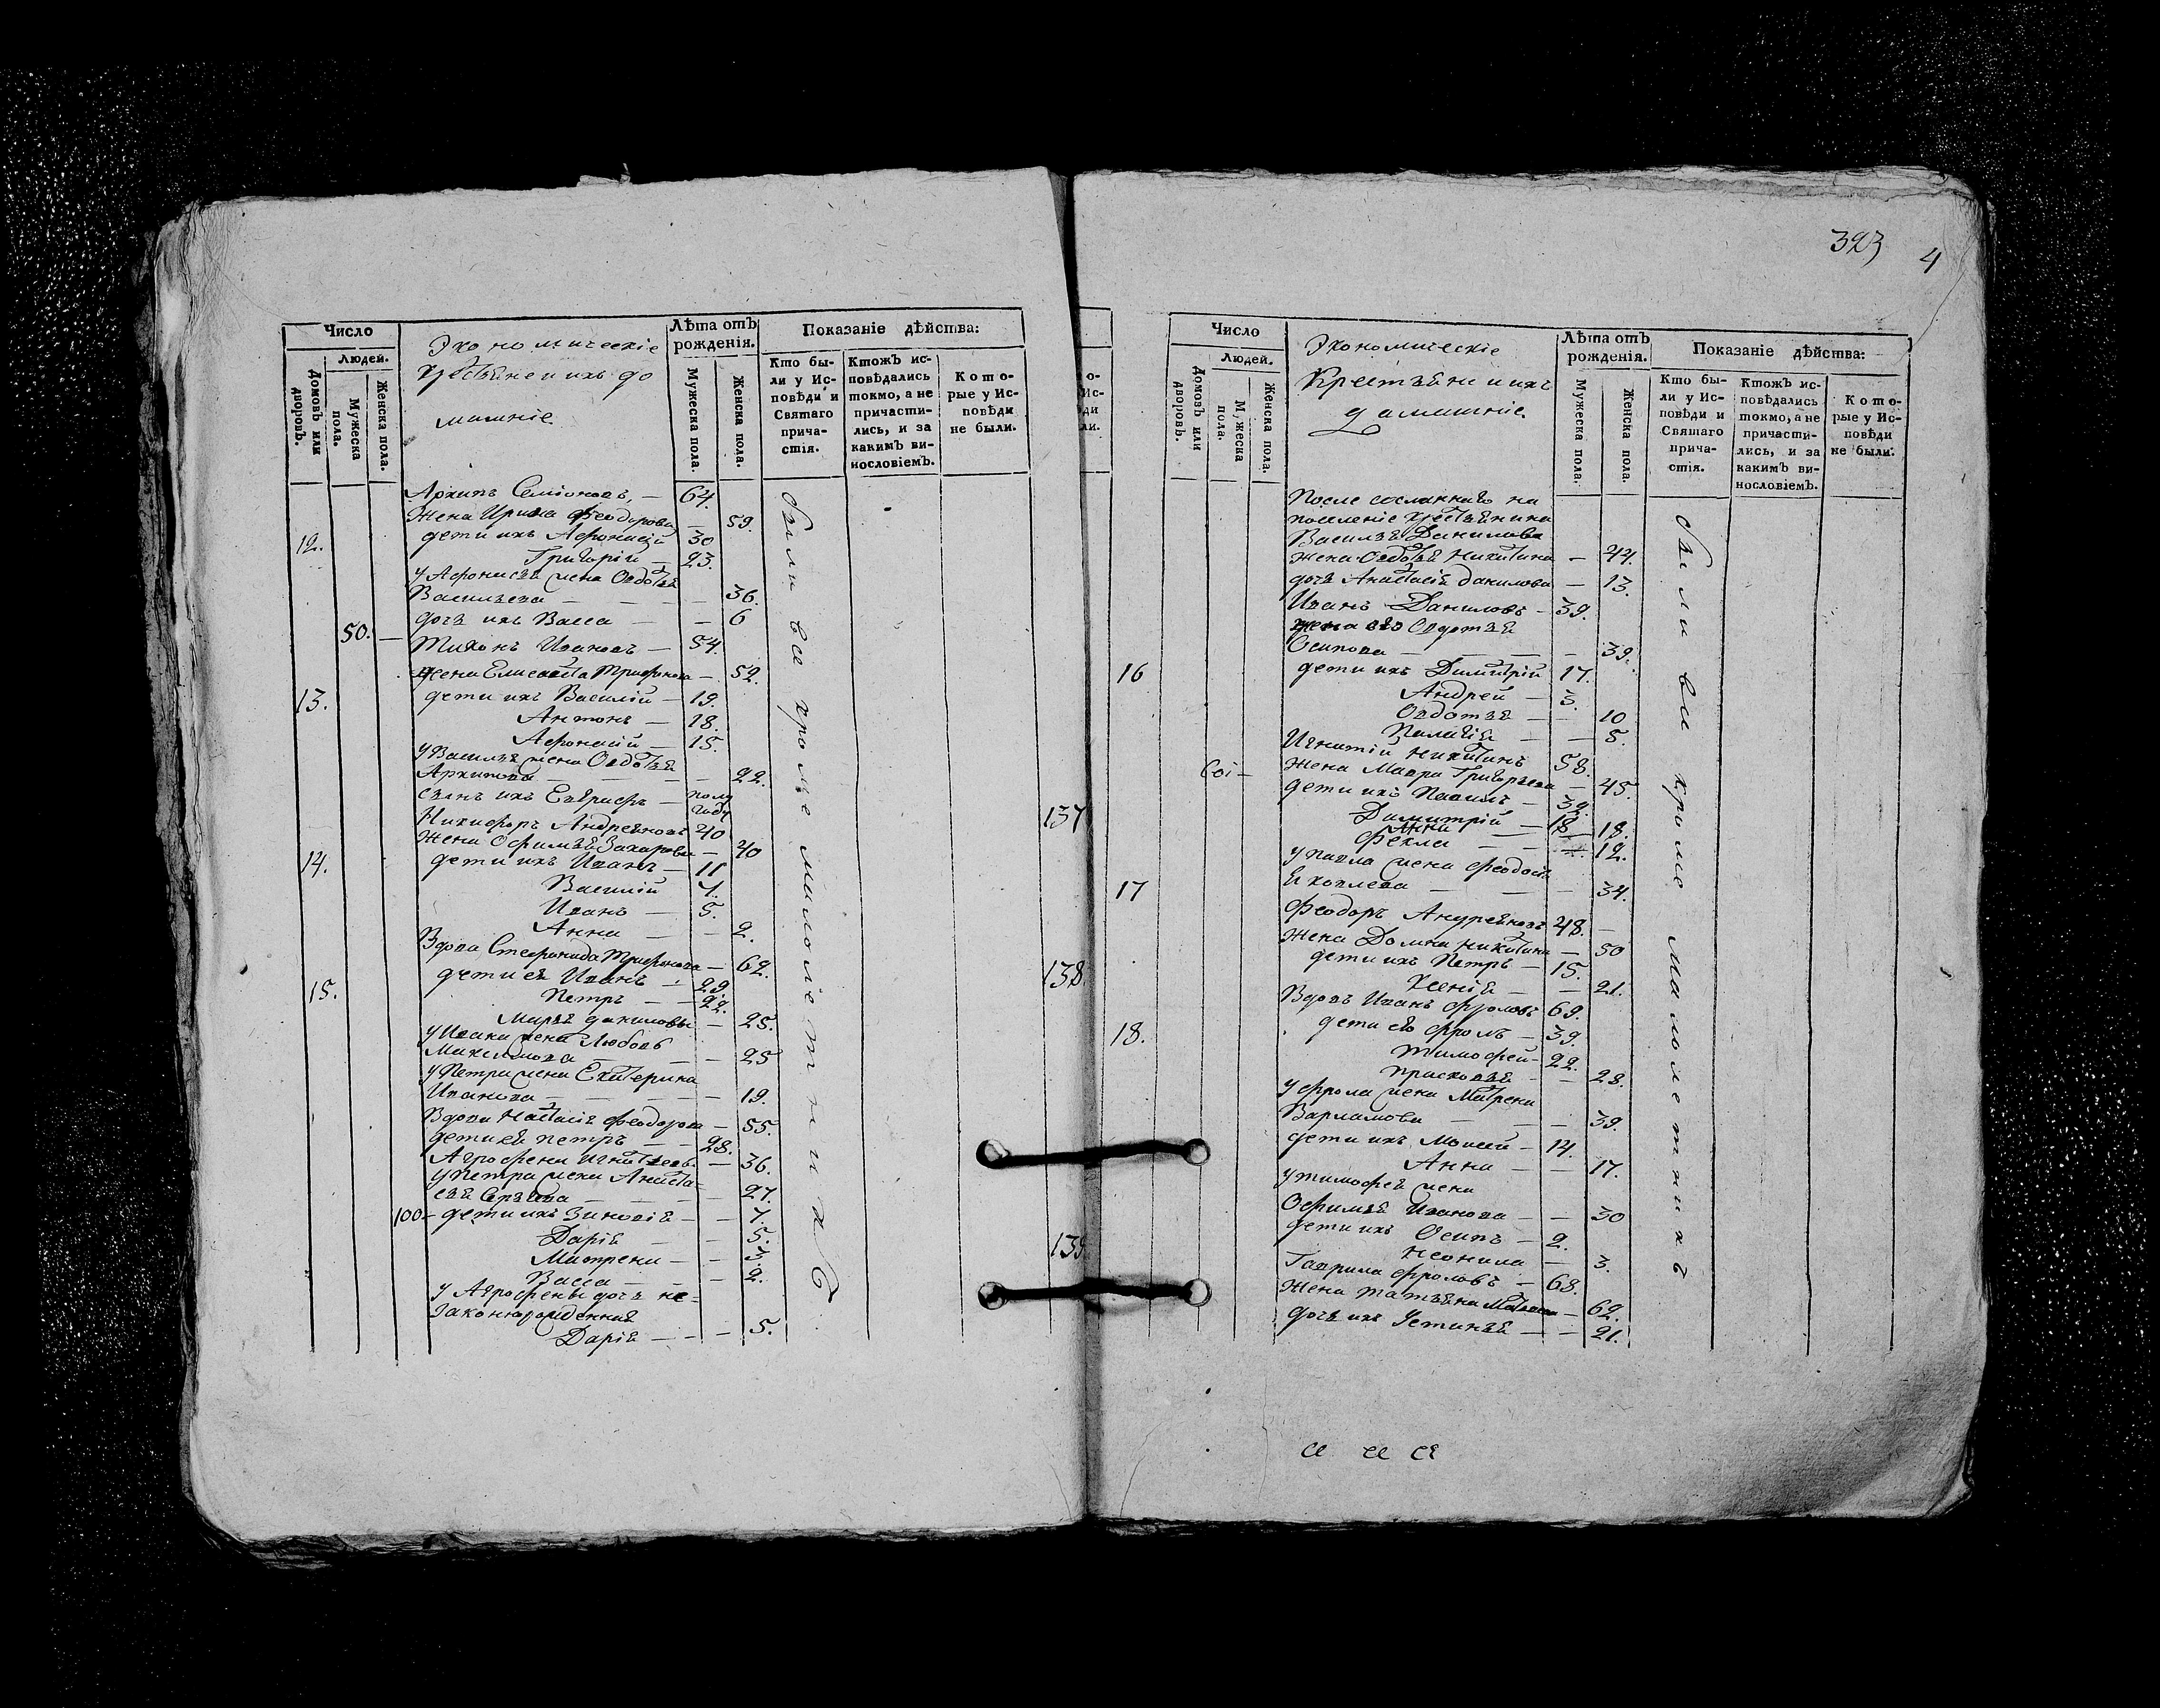 Число
Людей.
Домовъ или дворовъ.
Мужеска пола.
Женска пола.
Экономическіе
крестьяне и ихъ до
машніе
Лѣта отъ рожденія.
Мужеска пола.
Женска пола.
Показаніе дѣйства:
Кто бы-
ли у Ис-
повѣди и
Святаго
прича-
стія.
Ктожъ ис-
повѣдались
токмо, а не
причасти-
лись, и за
какимъ ви-
нословіемъ.
Кото-
рые у Ис-
повѣди
не были.
Архипъ Семіоновъ, — 64.
Жена Ирина Феодорова — 59.
12. дети ихъ Афонасій 30
Григорій — 23.
у Афонасья жена Овдотья
Васильева — 36.
дочь ихъ Васса — 6
50. — Тихонъ Ивановъ — 54.
жена Елисавета Трифонова — 52.
13. дети ихъ Василій — 19.
Антонъ — 18.
Афонасій — 15.
у Василья жена Овдотья
Архипова — 22.
сынъ ихъ — полу
году
Никифоръ Андреяновъ 40
Жена Офимья Захарова — 40
14. дети ихъ Иванъ — 11
Василій 7.
Иванъ — 5.
Анна — 2.
Вдова Стефанида Трифонова — 62.
15. дети ея Иванъ — 29
Петръ — 22.
Марья данилова — 25.
у Ивана жена Любовь
Максимова — 25
у Петра жена Екатерина
Иванова — 19.
Вдова Настасія Феодорова — 55.
дети ея Петръ — 28.
Агрофена — 36.
у Петра жена Анаста-
сья — 27.
100 — дети ихъ Зиновія — 7.
Дарія — 5.
Матрена — 3
Васса — 2.
у Агрофены дочь не=
законнорожденная
Дарія — 5.
были все кроме малолетникъ
323
4
137
138
139
Число
Людей.
Домовъ или дворовъ.
Мужеска пола.
Женска пола.
Экономическіе
Крестьяне и ихъ
домашніе
Лѣта отъ рожденія.
Мужеска пола.
Женска пола.
Показаніе дѣйства:
Кто бы-
ли у Ис-
повѣди и
Святаго
прича-
стія.
Ктожъ ис-
повѣдались
токмо, а не
причасти-
лись, и за
какимъ ви-
нословіемъ.
Кото-
рые у Ис-
повѣди
не были.
После сосланнаго на
поселеніе крестьянина
Василья Данилова
жена Овдотья Никитина — 44.
дочь Анастасія данилова — 13.
Иванъ Даниловъ — 39.
жена его Овдотья
Осипова — 39.
16 дети ихъ Димитрій 17.
Андрей — 3.
Овдотья — 10
Палагія — 8.
Игнатій Никитинъ 58.
Жена Мавра Григорьева — 45.
дети ихъ Павилъ — 39.
Димитрій — 18
Анна — 18.
Фекла — 12.
у Павла жена Феодосья
17 Яковлева — 34.
Феодоръ Андреяновъ 48. —
Жена Домна Никитина — 50
дети ихъ Петръ — 15.
Ксенія — 21.
Вдовъ Иванъ Фроловъ 69.
18. дети его Фролъ — 39.
Тимофей — 22.
Прасковья — 28.
у Фрола жена Матрена
Варламова — 39.
дети ихъ Моисей — 14.
Анна — 17.
у Тимофея жена
Офимья Иванова — 30
дети ихъ Осипъ — 2.
Неонила — 3.
Гаврила Фроловъ — 68.
Жена Татьяна — 62.
дочь ихъ Устинья — 21.
были вси кроме малолетникъ